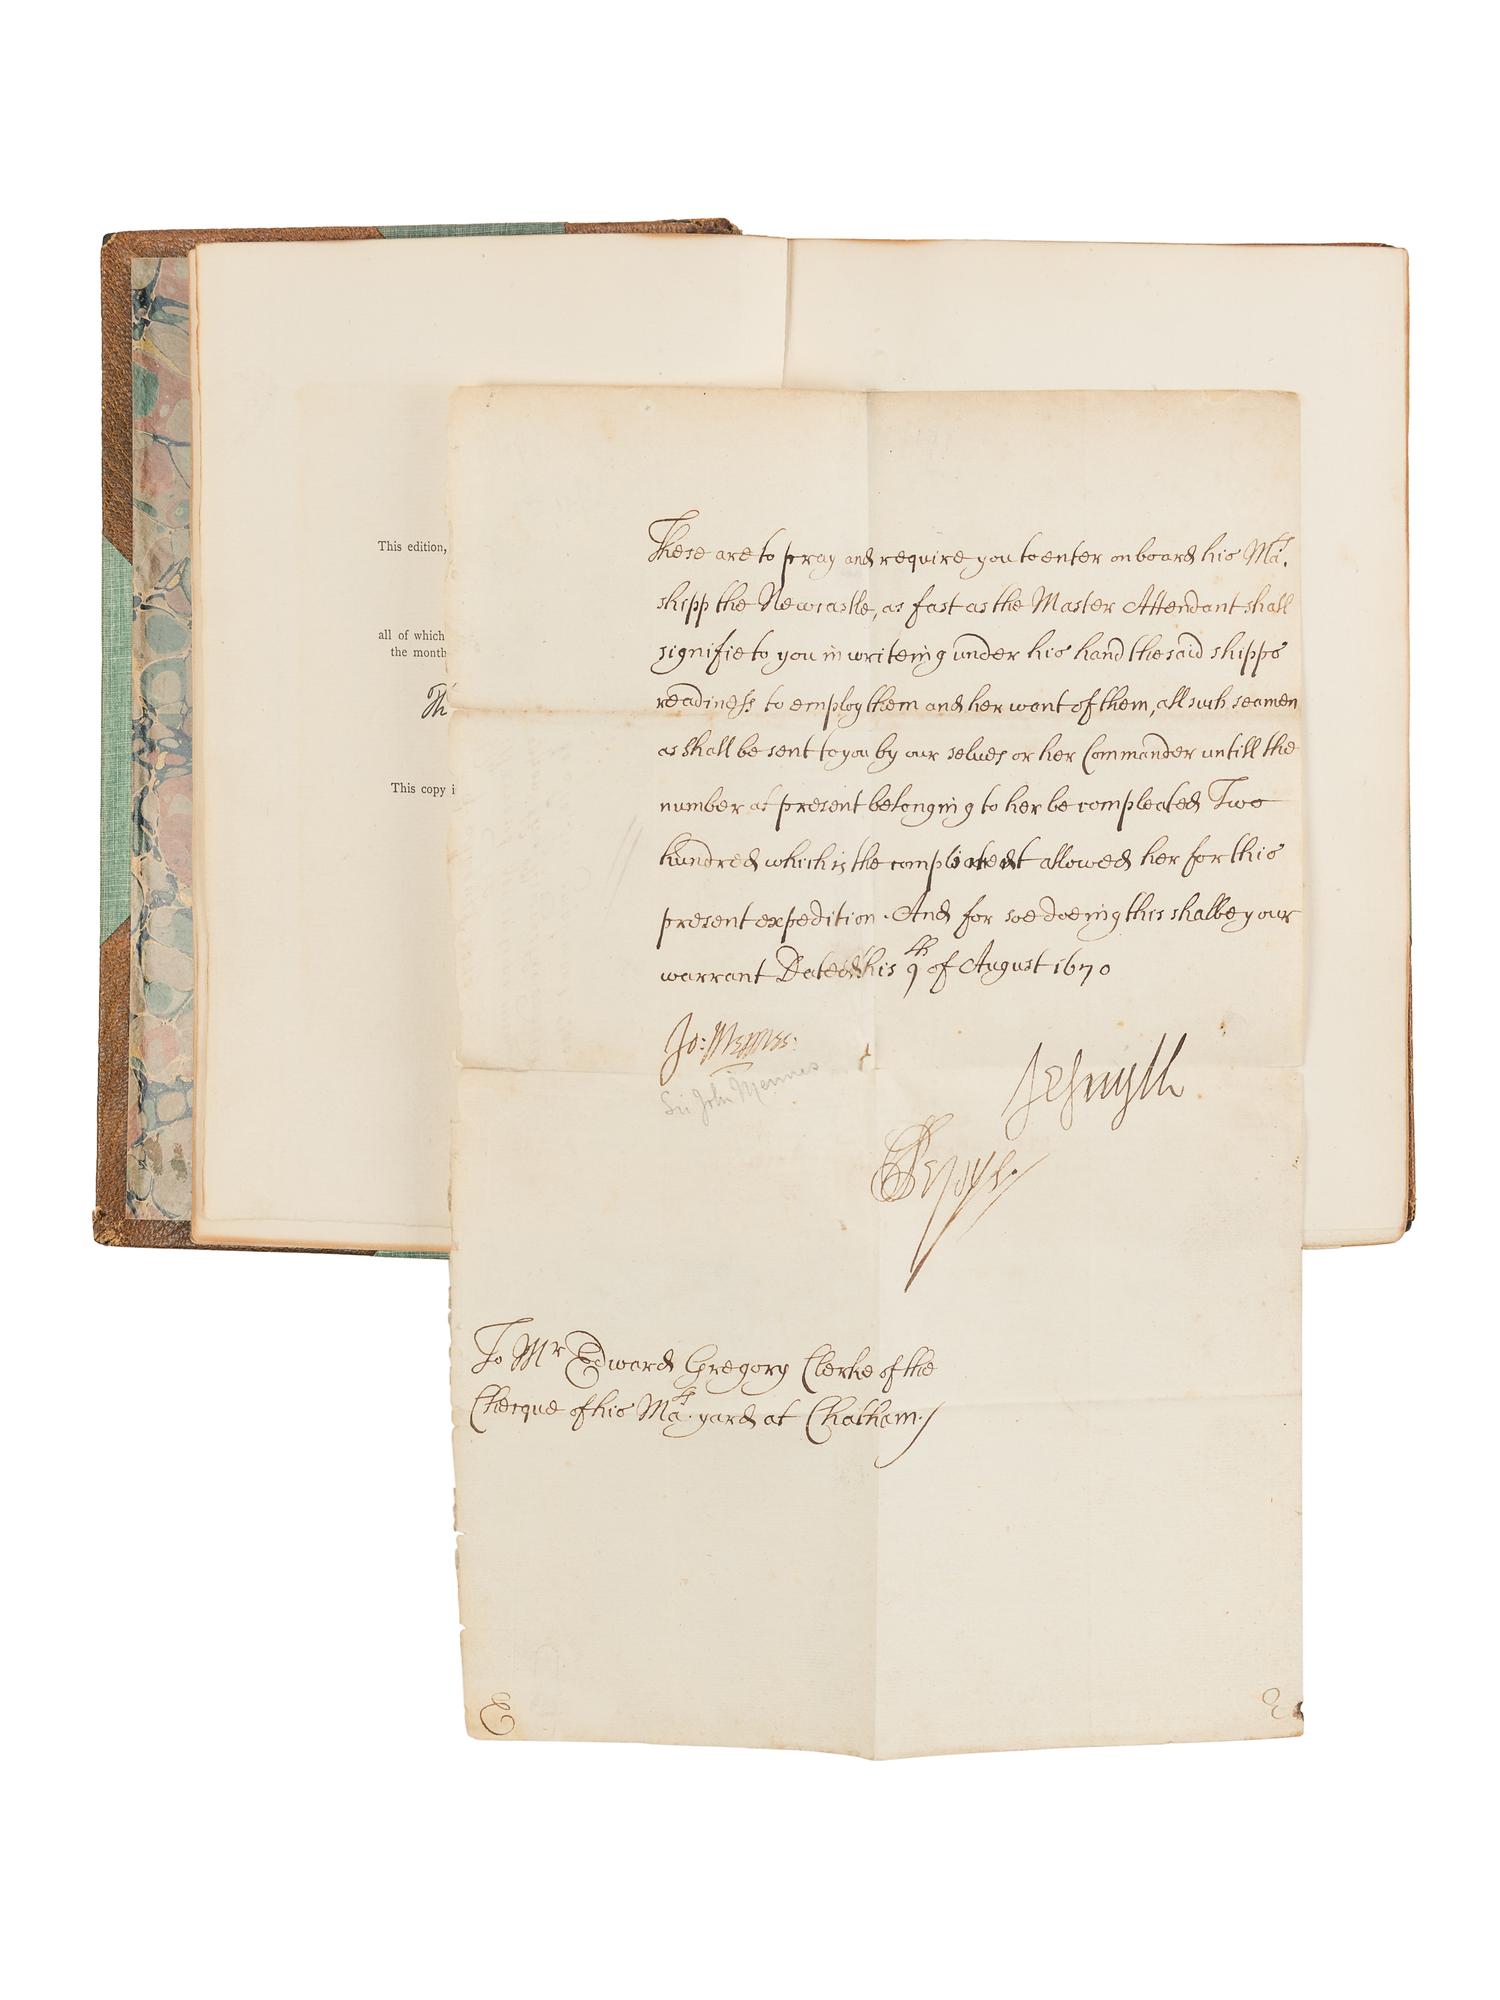 This edition,
all of which
the month
Th
This copy i
These are to pray and require you to enter on board his Ma.ts
shipp the Newcastle, as fast as the Master Attendant shall
signifie to you in writeing under his hand the said shipps
readiness to employ them and her want of them, all such seamen
as shall be sent to you by our selves or her Commander untill the
number at present belonging to her be compleated Two
hundred which is the allowed her for this
present expedition. And for soe doeing this shalbe your
warrant Dated this 9th of August 1670
Jo: Mennes:
Sir John Mennes
JeSmyth
SPepys.
To Mr Edward Gregory Clerke of the
Checque of his Ma.ts yard at Chatham./
E